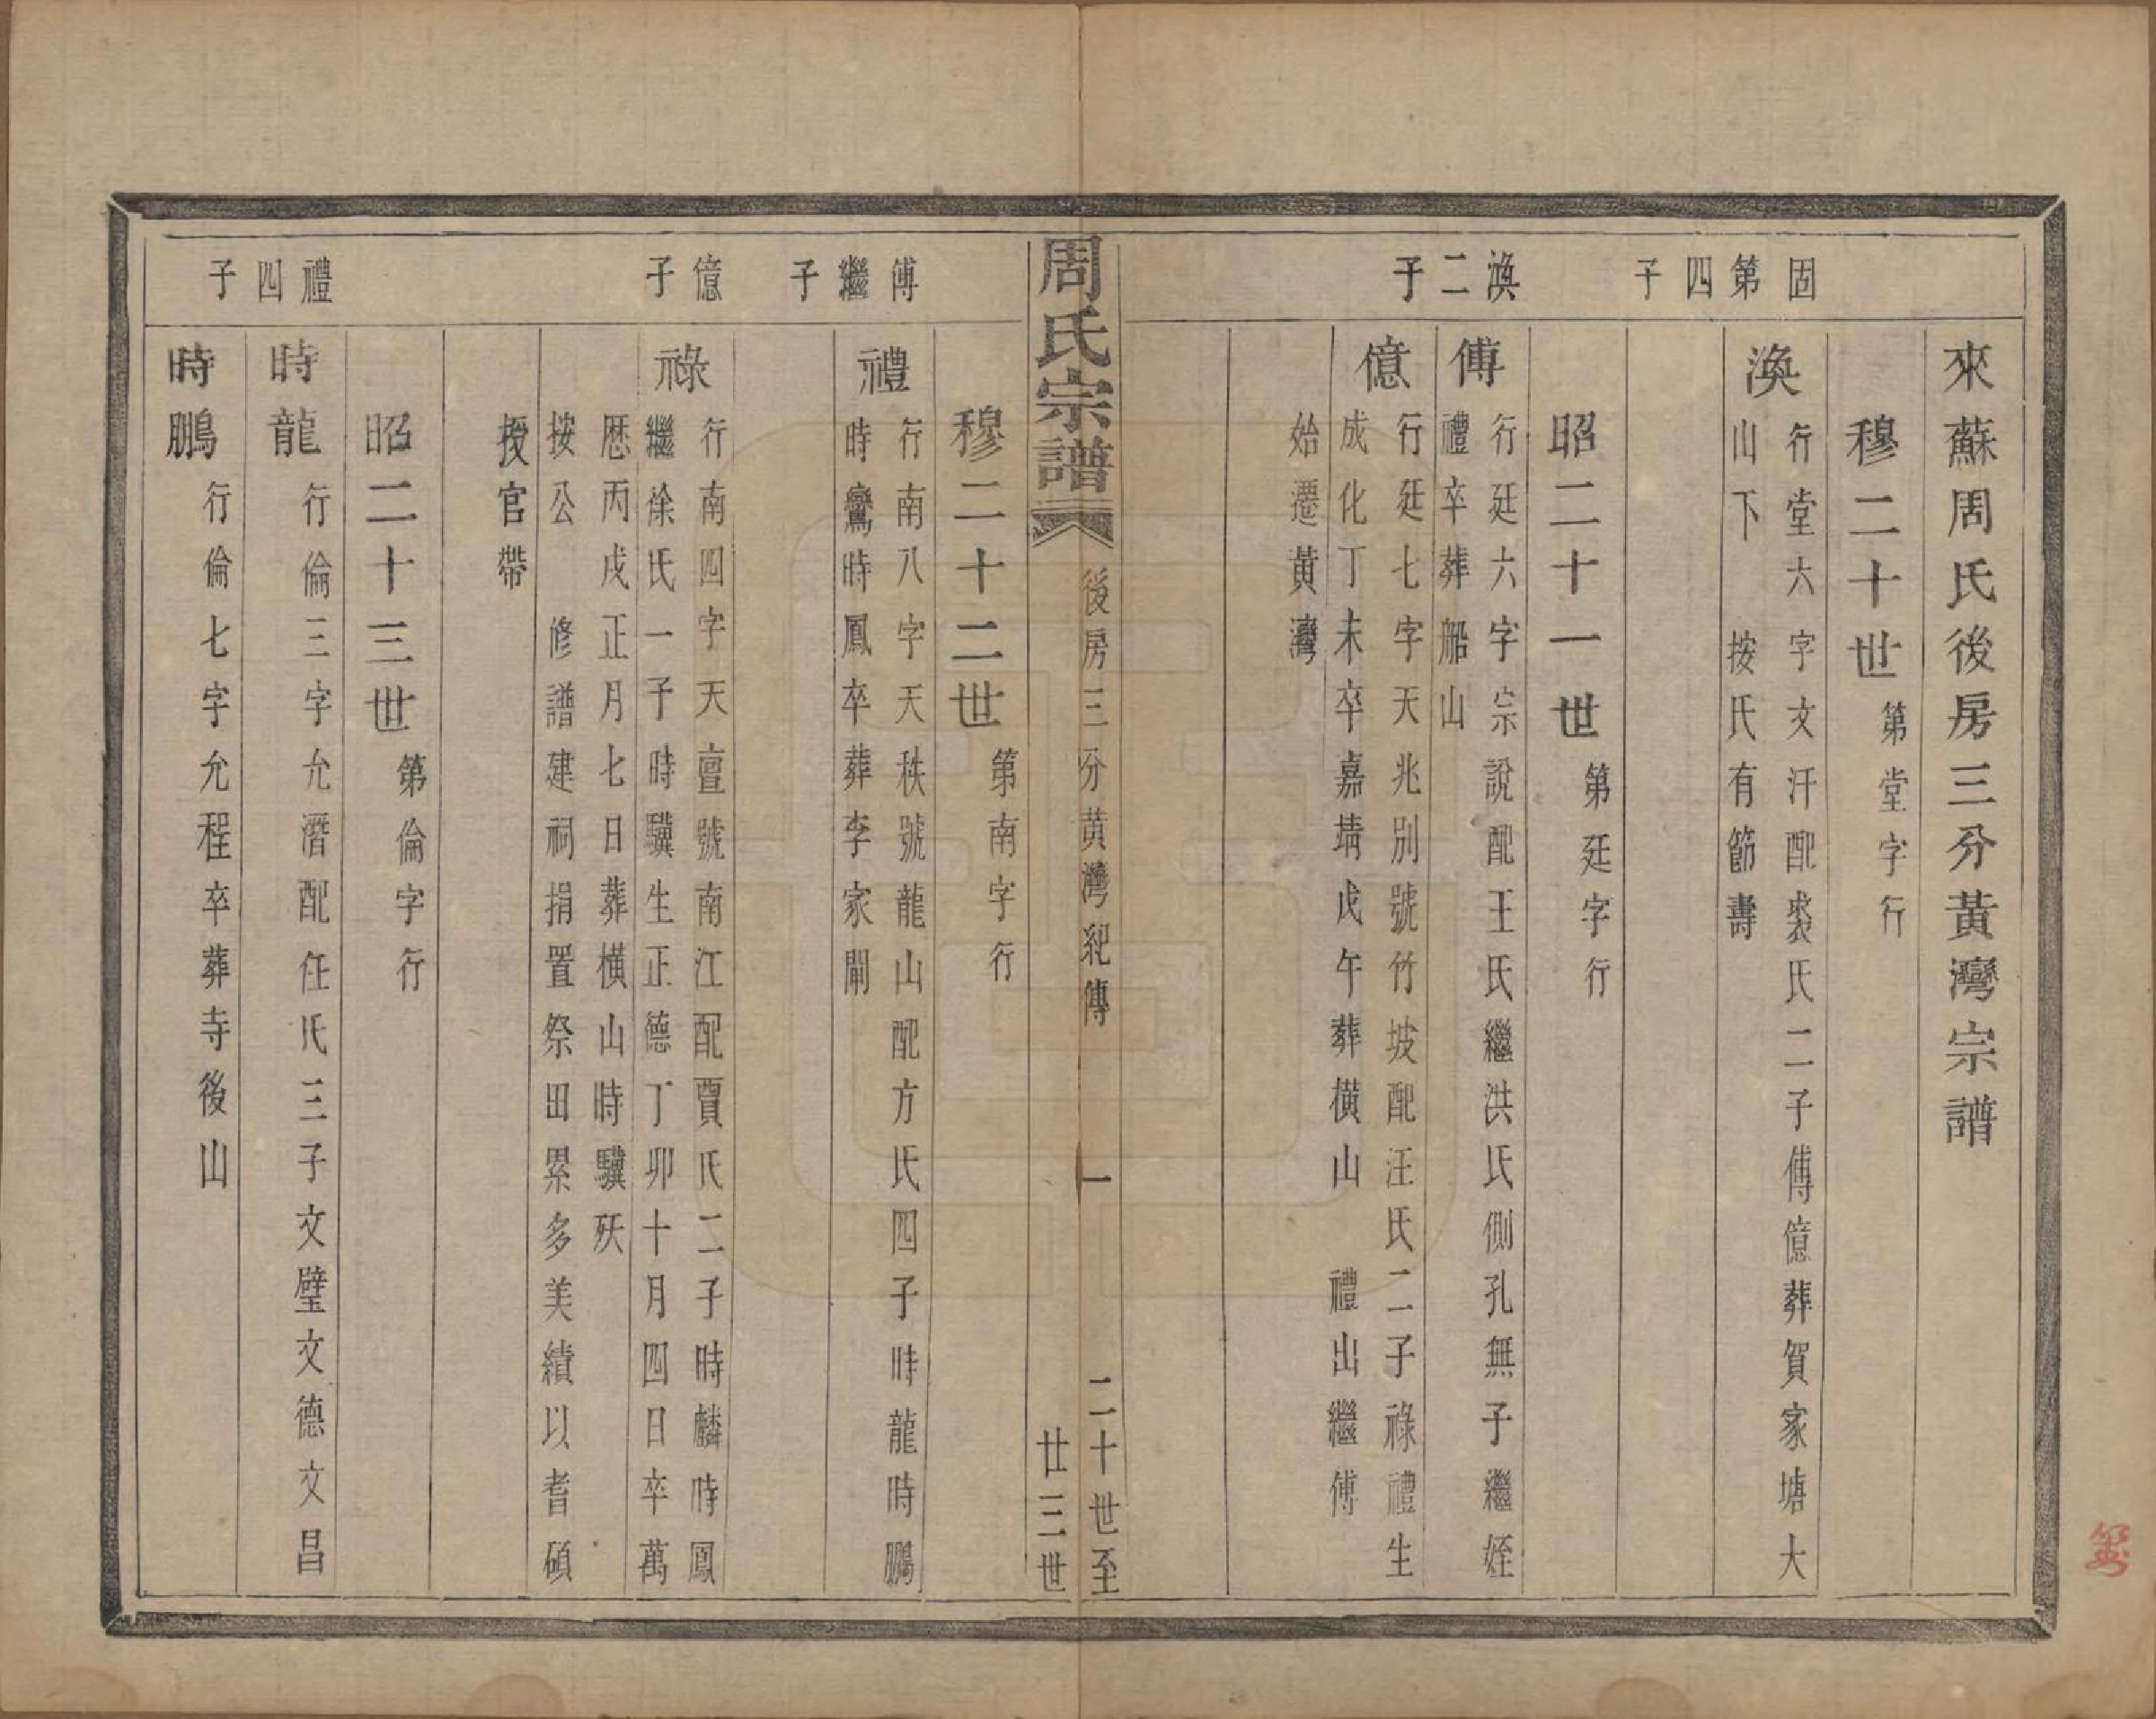 來蘇周氏後房三分黃灣宗譜
穆二十世第堂字行
固第四子
渙行堂六字文汗配裘氏二子傅億葬賀家塘大
山下 按氏有節壽
昭二十一世第廷字行
渙二子
傅行廷六字宗說配王氏繼洪氏側孔無子繼姪
禮卒葬船山
億行廷七字天兆別號竹坡配汪氏二子祿禮生
成化丁未卒嘉靖戊午葬橫山 禮出繼傅
始遷黃灣
周氏宗譜
後房三分黃灣紀傳
一
二十世至
廿三世
穆二十二世第南字行
傅繼子
禮行南八字天秩號龍山配方氏四子時龍時鵬
時鸞時鳳卒葬李家閘
億子
祿行南四字天亶號南江配賈氏二子時麟時鳳
繼徐氏一子時驥生正德丁卯十月四日卒萬
歷丙戌正月七日葬橫山時驥殀
按公 修譜建祠捐置祭田累多美績以耆碩
授官帶
昭二十三世第倫字行
禮四子
時龍行倫三字允潛配任氏三子文璧文德文昌
時鵬行倫七字允程卒葬寺後山